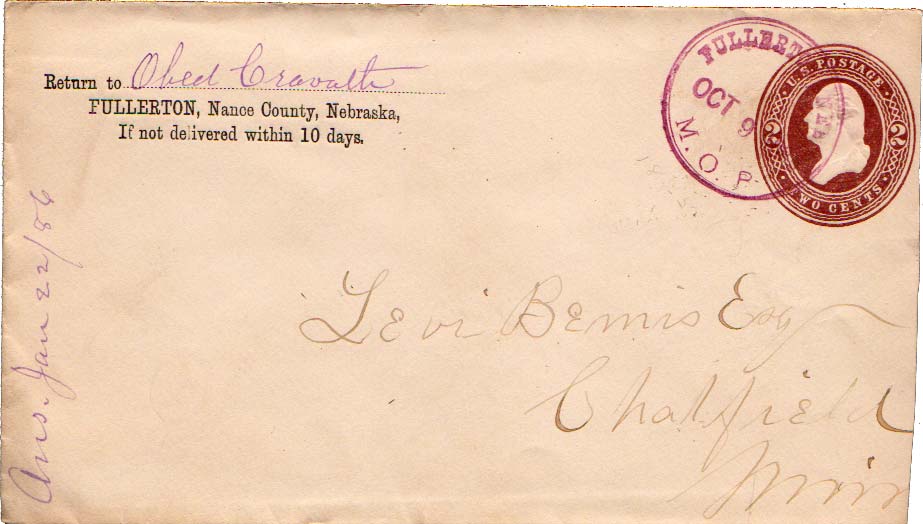 Return to Obed Cravath
FULLERTON, Nance County, Nebraska,
If not delivered within 10 days.
FULLERT
OCT 9
M. O. P
U.S. POSTAGE
2 2
TWO CENTS
Ans. Jan 22/86
Levi Bemis Esq
Chatfield
Minn